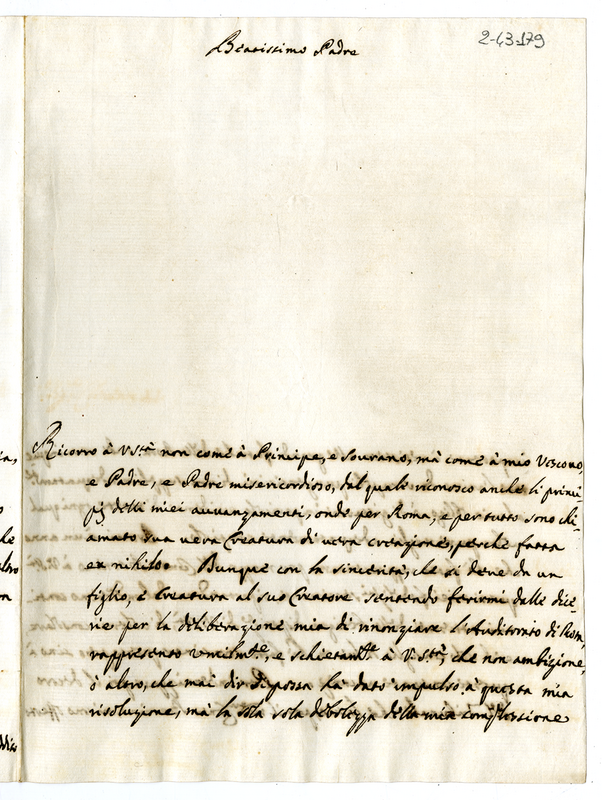 2-43-179
Beatissimo Padre
Ricorro à V Stà non come à Principe, e sourano, mà come à mio Vescouo,
e Padre, e Padre misericordioso, dal quale riconosco anche li princi
pij delli miei auuanzamenti, onde per Roma, e per tutto sono chi-
amato sua uera Creatura di uera creazione, perche fatta
ex nihilo. Dunque con la sincerità, che si deue da un
figlio, e Creatura al suo Creatore sentendo ferirmi dalle dice-
rie per la deliberazione mia di rinonziare l'Auditorato di Rom,
rappresento umilmte, e schietamte à V Stà, che non ambizione,
ò altro, che mai dir si possa hà dato impulso à questa mia
risoluzione, mà la sola sola debolezza della mia complessione